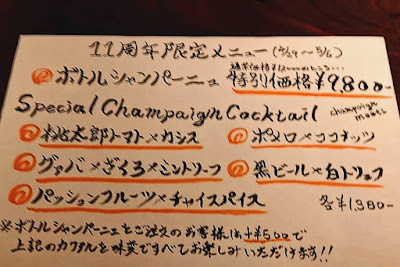 11周年限定メニュー(4/29〜5/6)
通常価格¥12000のところ…
ボトルシャンパーニュ 特別価格¥9800-
Special Champaign Cocktail
champaign
桃太郎トマト×カシス
ポメロ×ココナッツ
グァバ×ざくろ×ミントリーフ
黒ビール×白トリュフ
パッションフルーツ×チャイスパイス
各¥1,380-
※ボトルシャンパーニュをご注文のお客様は+¥500で
上記のカクテルと味変ですべてお楽しみいただけます!!